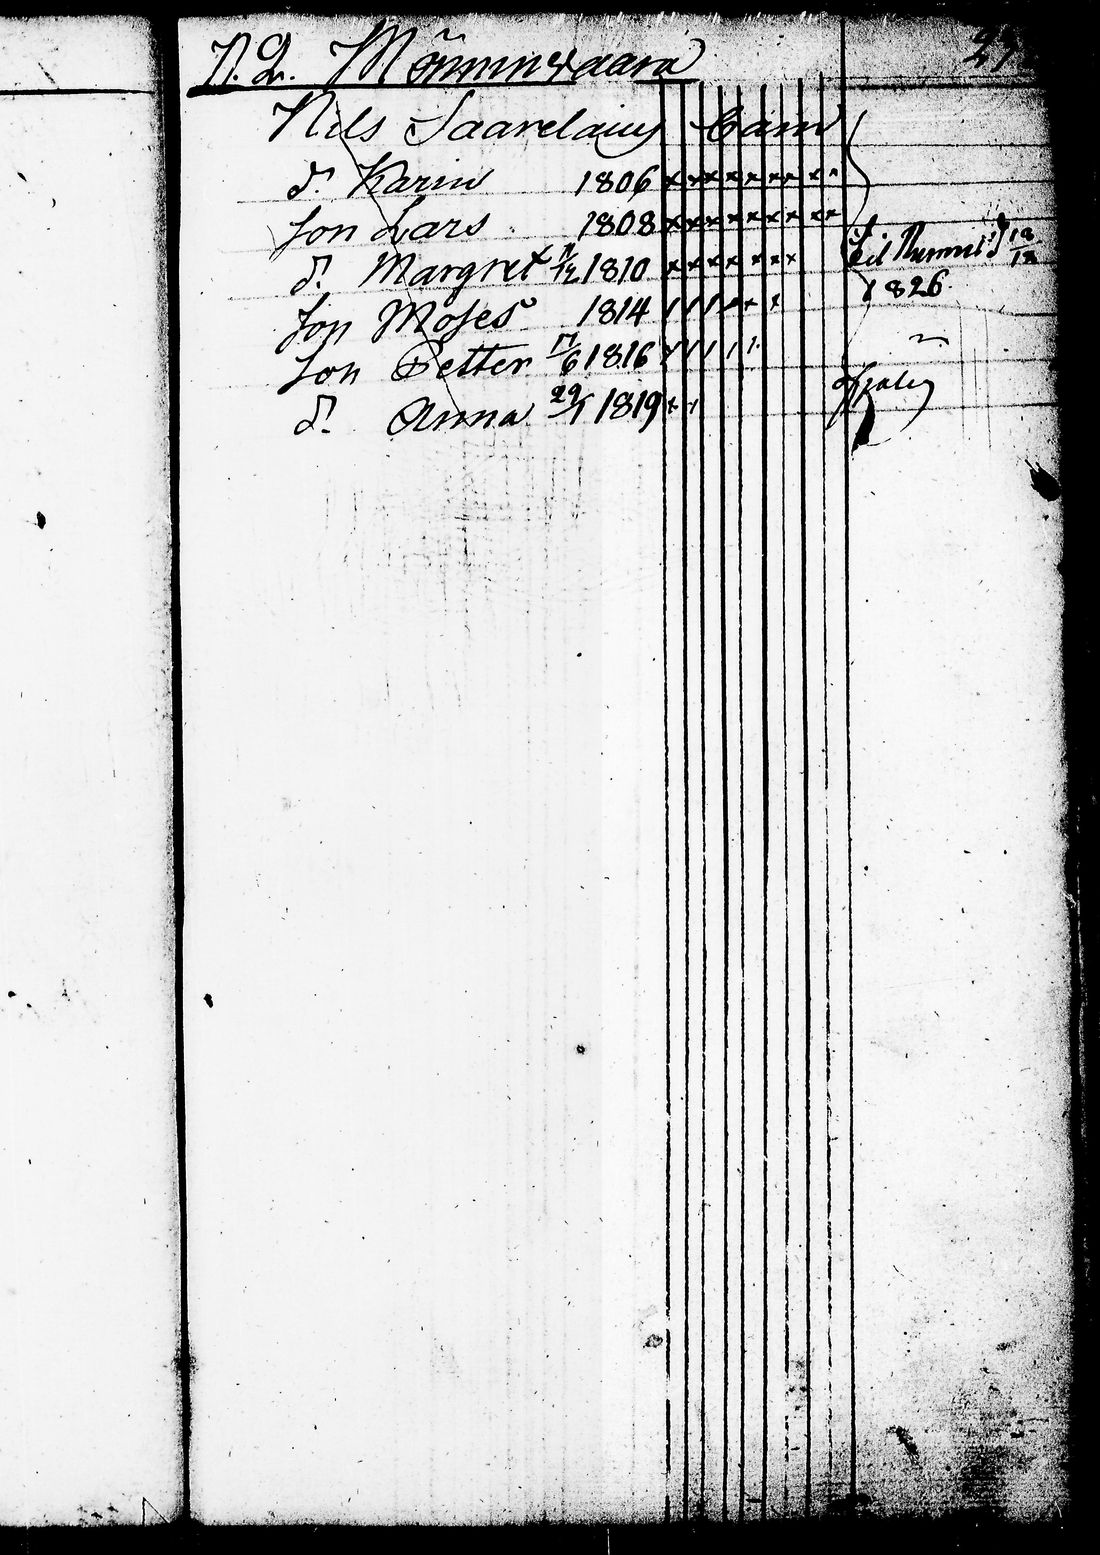 N. 2. Mönninvaara
Nils Saarelain Barn
d. Karin 1806
Son Lars 1808
d. Margret 11/12 1810
Son Moses 1814
Son Petter 17/6 1816
d. Anna 29/1 1819
Til 18/12
1826